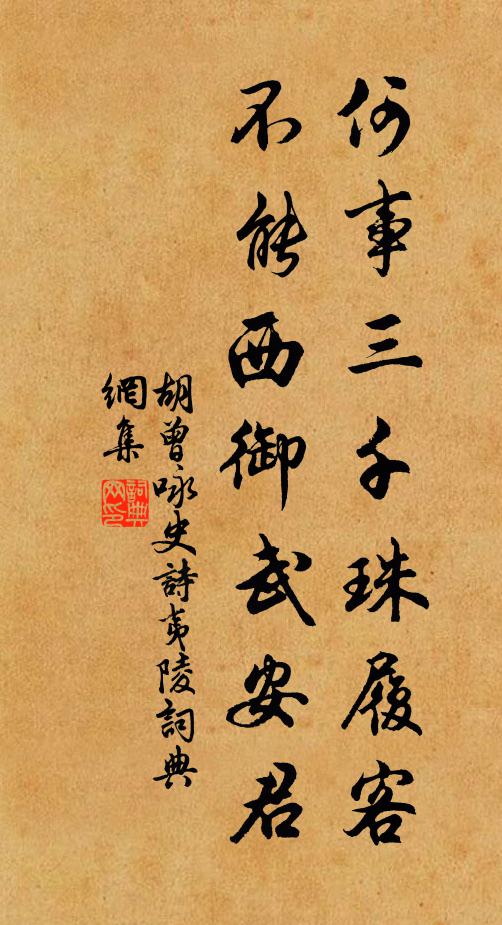 何事三千珠履客
不能西御武安君
胡曾咏史詩夷陵詞典
網集
詞典
网印